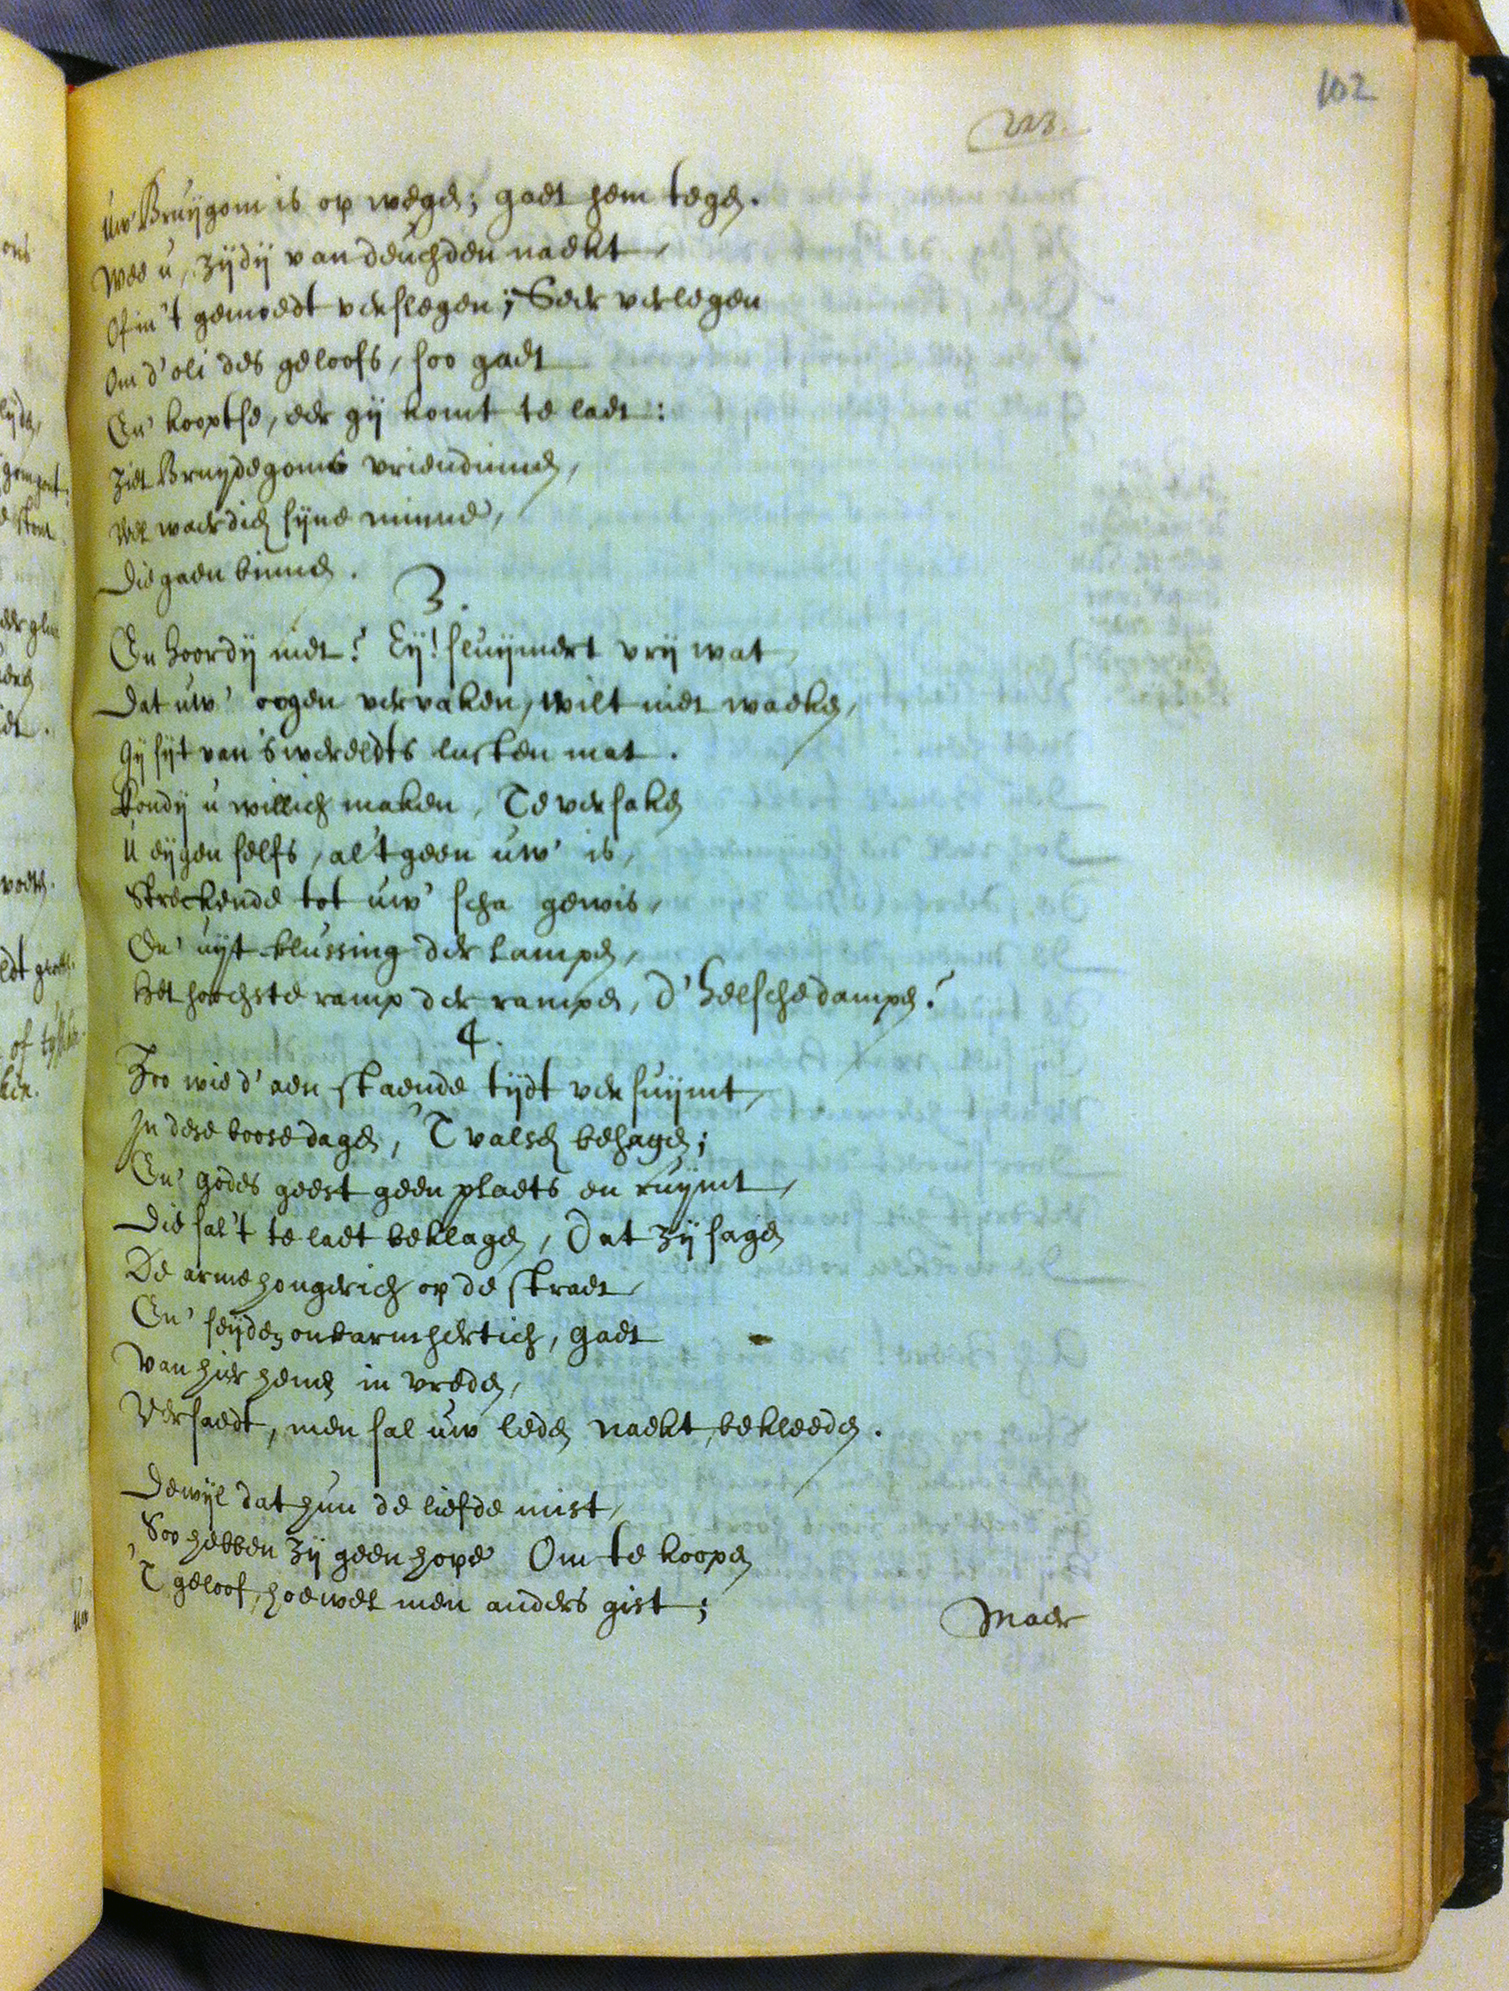 102
223.
Uw' Bruÿgom is op wegen; gaet hem tegen.
Wee u, zÿdÿ van deuchden naekt,
Of in 't gemoedt verslegen; Seer verlegen
Om d'oli des geloofs, soo gaet
En' kooptse, eer gÿ komt te laet:
Ziet Bruydegoms vriendinnen,
Wel waerdich syne minne,
Die gaen binnen.
3.
En hoordÿ niet? Eÿ! sluÿmert vrÿ wat
Dat uw' oogen vervaken, wilt niet waeken,
Gÿ sÿt van 's wereldts lusten mat.
Kondÿ u willich maken, Te versaken
U eÿgen selfs, al 't geen uw' is,
Streckende tot uw' scha gewis,
En' uÿt-blussing der lampen,
Het hoochste ramp der rampen, d' helsche dampen?
4.
Zoo wie d' aen staende tÿdt versuÿmt,
In dese boose dagen, 'T valsch behagen;
En' godes geest geen plaets en ruÿmt,
Die sal 't te laet beklagen, Dat zÿ sagen
De arme hongerich op de straet,
En' seÿden onbarmhertich, gaet
Van hier henen in vreden,
Versaedt, men sal uw leden naekt, bekleeden.
Dewÿl dat hun de liefde mist,
Soo hebben zÿ geen hope Om te koopen
'T geloof, hoewel men anders gist;
Maer